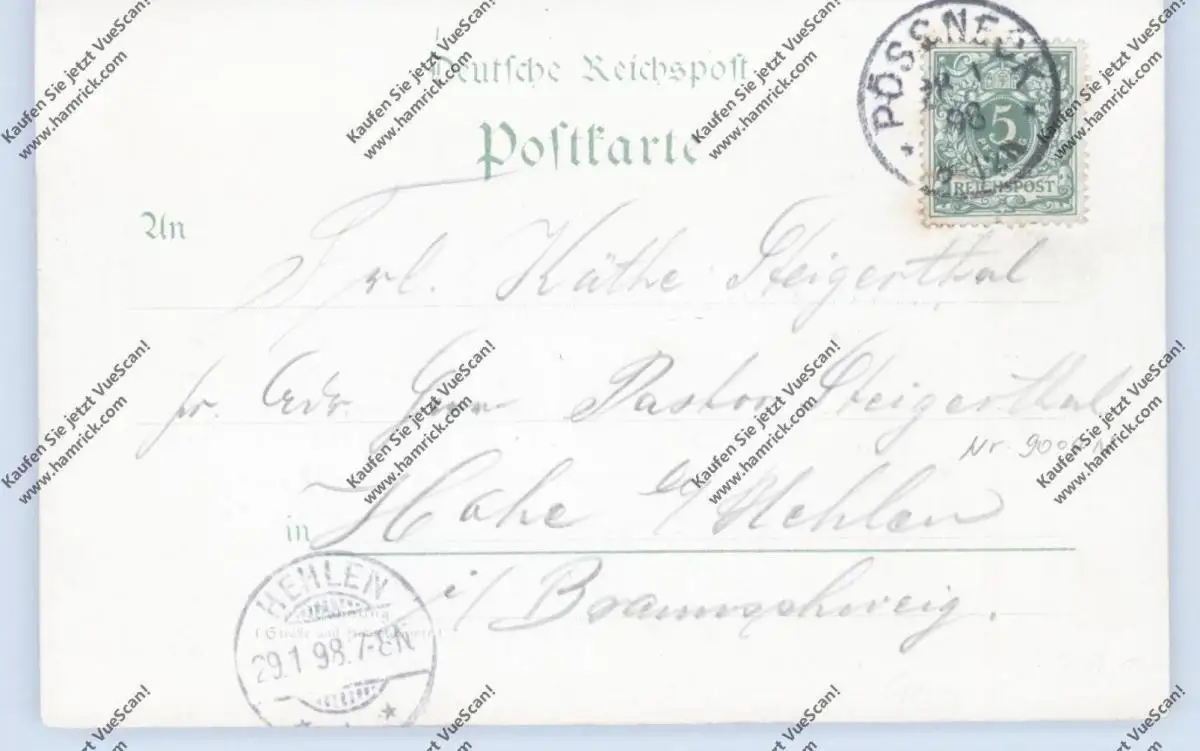 Deutsche Reichspost
Postkarte
PÖSSNECK
28 1
98
5
REICHSPOST
An
Frl. Käthe Steigerthal
pr. Adr. Herrn Pastor Steigerthal
Nr. 900
in Hohe b/ Hehlen
i/ Braunschweig.
HEHLEN
29.1 98. 7-8N
Kaufen Sie jetzt VueScan!
www.hamrick.com